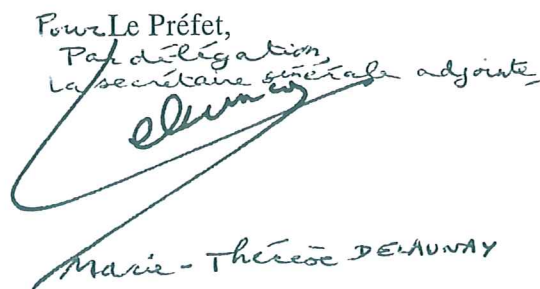 Pour Le Préfet,
Par délégation,
La secrétaire générale adjointe,
Marie-Thérèse DELAUNAY